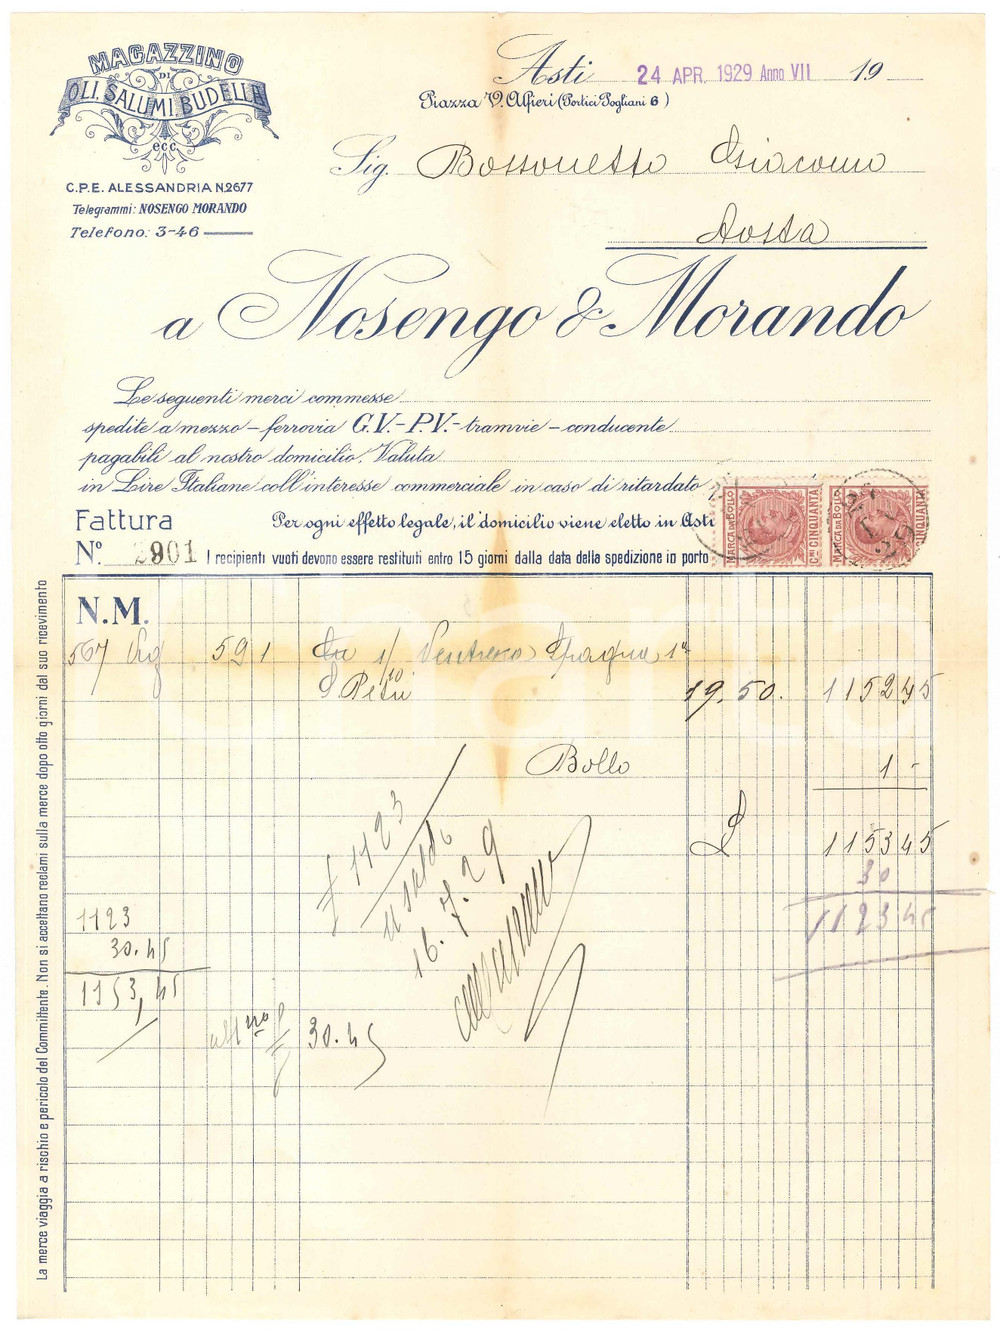 MAGAZZINO
DI
OLI, SALUMI, BUDELLA
ecc.
C.P.E. ALESSANDRIA N.2677
Telegrammi: NOSENGO MORANDO
Telefono: 3-46
Asti 24 APR. 1929 Anno VII 19
Piazza V. Alfieri (Portici Pogliani 6)
Sig. Bossonetto Giacomo
Aosta
a Nosengo & Morando
Le seguenti merci commesse
spedite a mezzo - ferrovia G.V. - P.V. - tramvie - conducente
pagabili al nostro domicilio. Valuta
in Lire Italiane coll'interesse commerciale in caso di ritardato
Fattura Per ogni effetto legale, il domicilio viene eletto in Asti
N.° 2901 I recipienti vuoti devono essere restituiti entro 15 giorni dalla data della spedizione in porto
MARCA DA BOLLO
C.mi CINQUANTA
MARCA DA BOLLO
CINQUANTA
N.M.
567 Kg 591 1/10 Ventresca Spagna 1a
Pesi 19,50. 115245
Bollo 1 -
£ 115345
30
112345
£ 1123
a saldo
16.7.29
1123
30.45
1153,45
30.45
La merce viaggia a rischio e pericolo del Committente. Non si accettano reclami sulla merce dopo otto giorni dal suo ricevimento